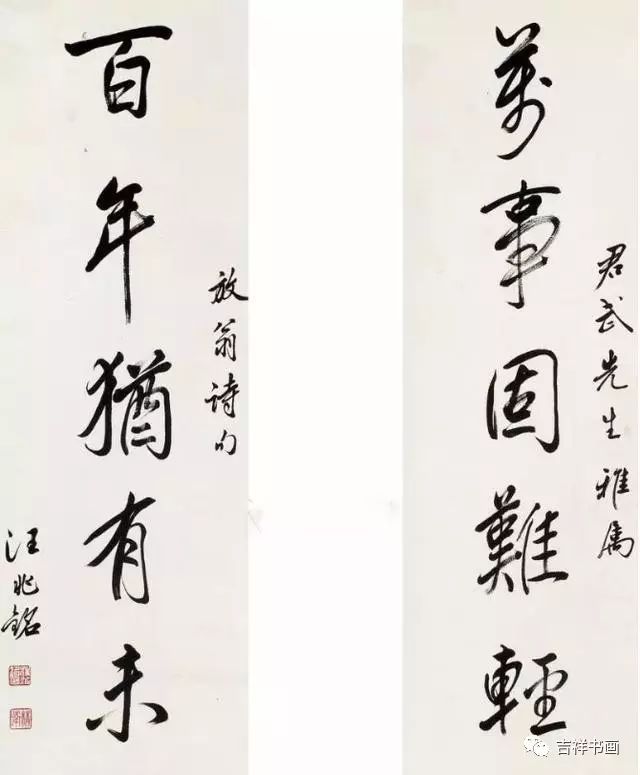 君武先生雅属
萬事固難輕
放翁詩句
百年猶有未
汪兆銘
吉祥书画